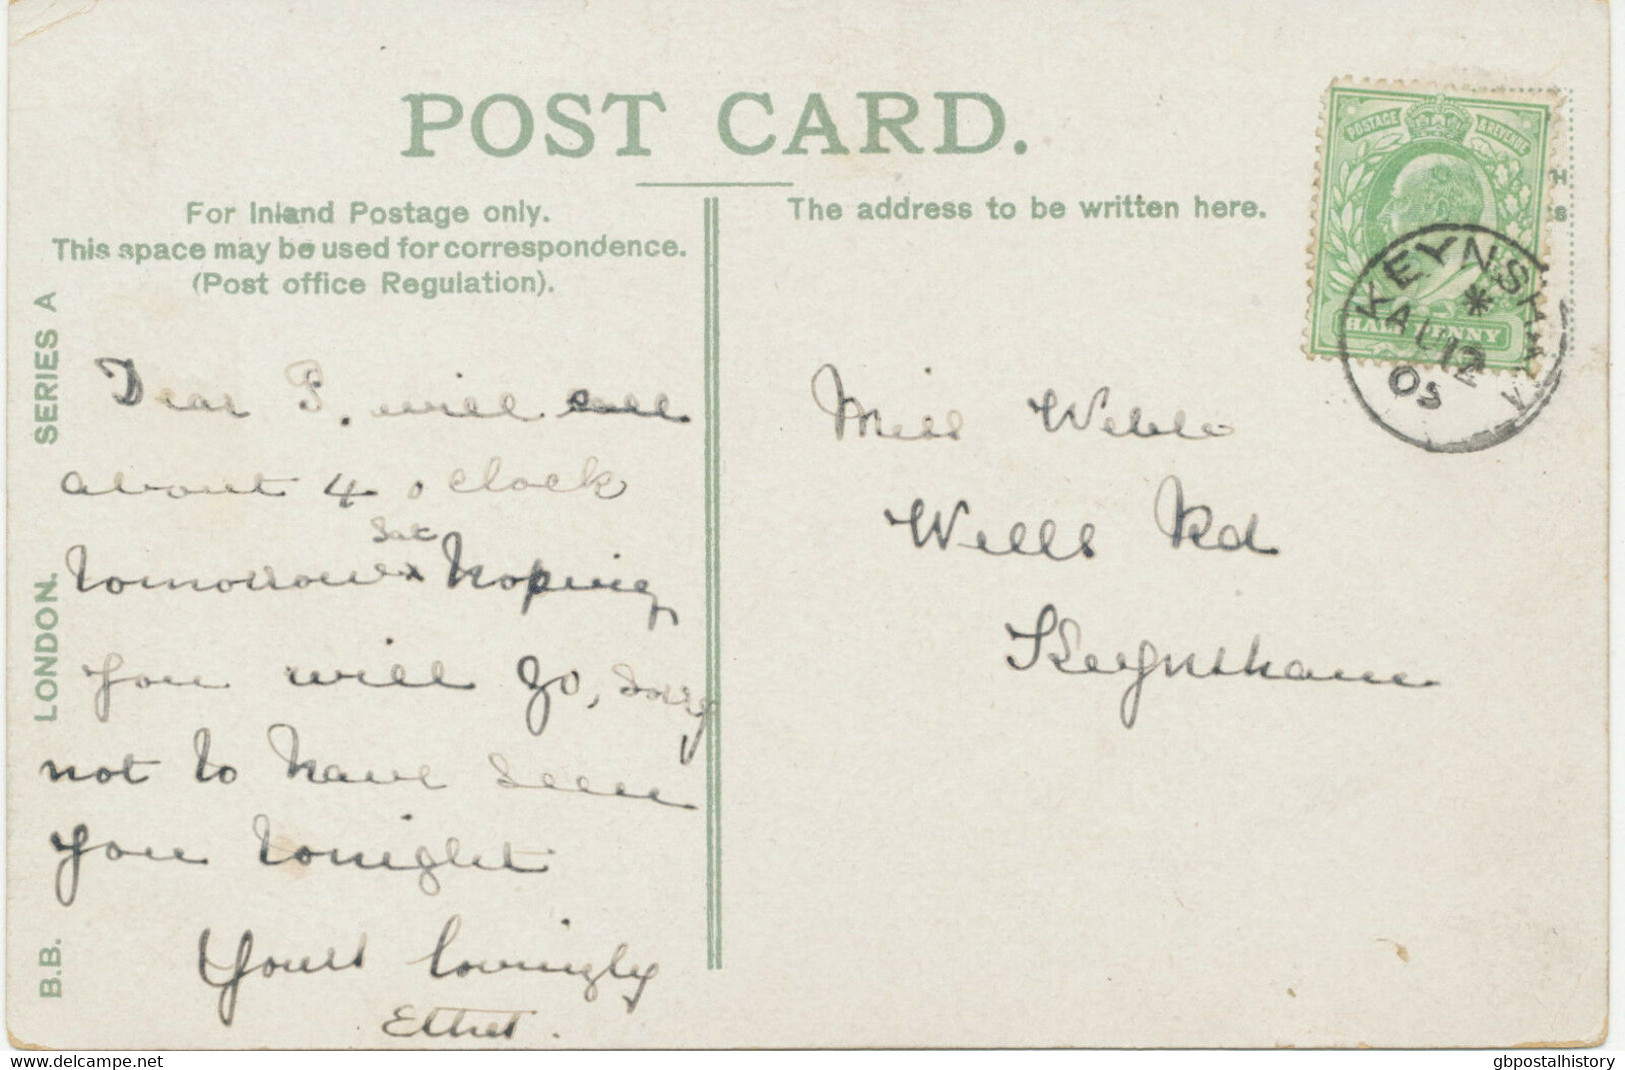 POST CARD.
For Inland Postage only.
This space may be used for correspondence.
(Post office Regulation).
The address to be written here.
POSTAGE & REVENUE
HALF PENNY
KEYNSHAM
*
AU 12
05
B.B. LONDON. SERIES A
Dear P. will call
about 4 o clock
Sat
tomorrow x hoping
you will go, sorry
not to have seen
you tonight
Yours lovingly
Ethel.
Miss Webb
Wells Rd
Keynsham
delcampe.net
gbpostalhistory